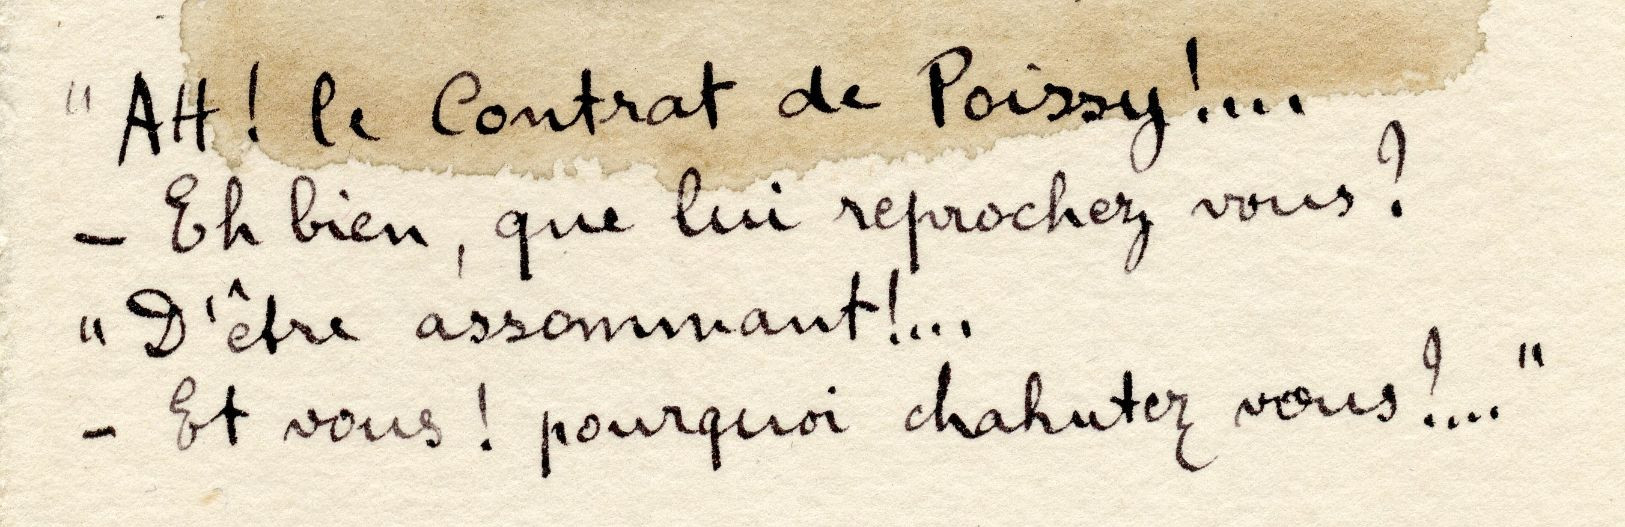 "AH! le Contrat de Poissy!...
– Eh bien, que lui reprochez vous?
"D'être assommant!...
– Et vous! pourquoi chahutez vous?..."